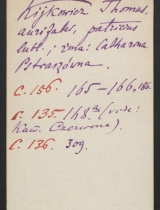 Kijkowicz Thomas,
aurifaks, patricius
lubl.; żona: Catharna
Pstrarzówna.
C. 156. 165–166, 186.
C. 135. 168
Kaw. Czerwona).
C. 136. 309.